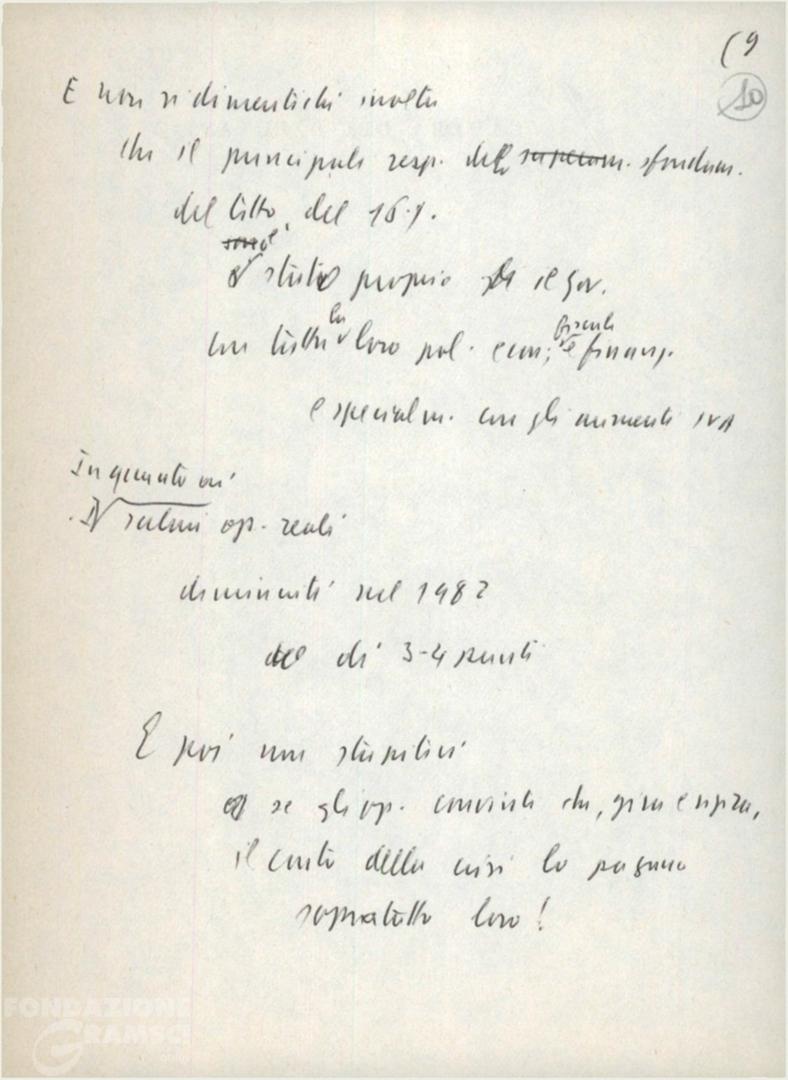 (9
10
E non si dimentichi inoltre
che il principale resp. dello superam. sfondam.
del tetto del 16%.
è
è stato proprio il gov.
con tutta la loro pol. econ., fiscale e finanz.
e specialm. con gli aumenti IVA
In quanto ai
salari op. reali
diminuiti nel 1982
di 3-4 punti
E poi non stupitevi
se gli op. convinti che, gira e rigira,
il conto della crisi lo pagano
sopratutto loro!
FONDAZIONE
GRAMSCI